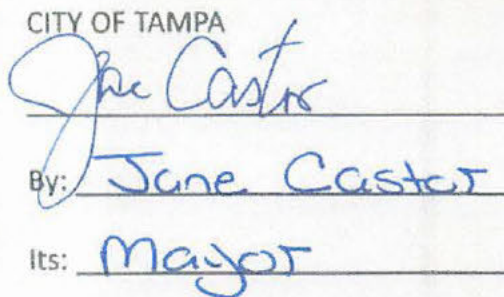 CITY OF TAMPA
Jane Castor
By: Jane Castor
Its: Mayor